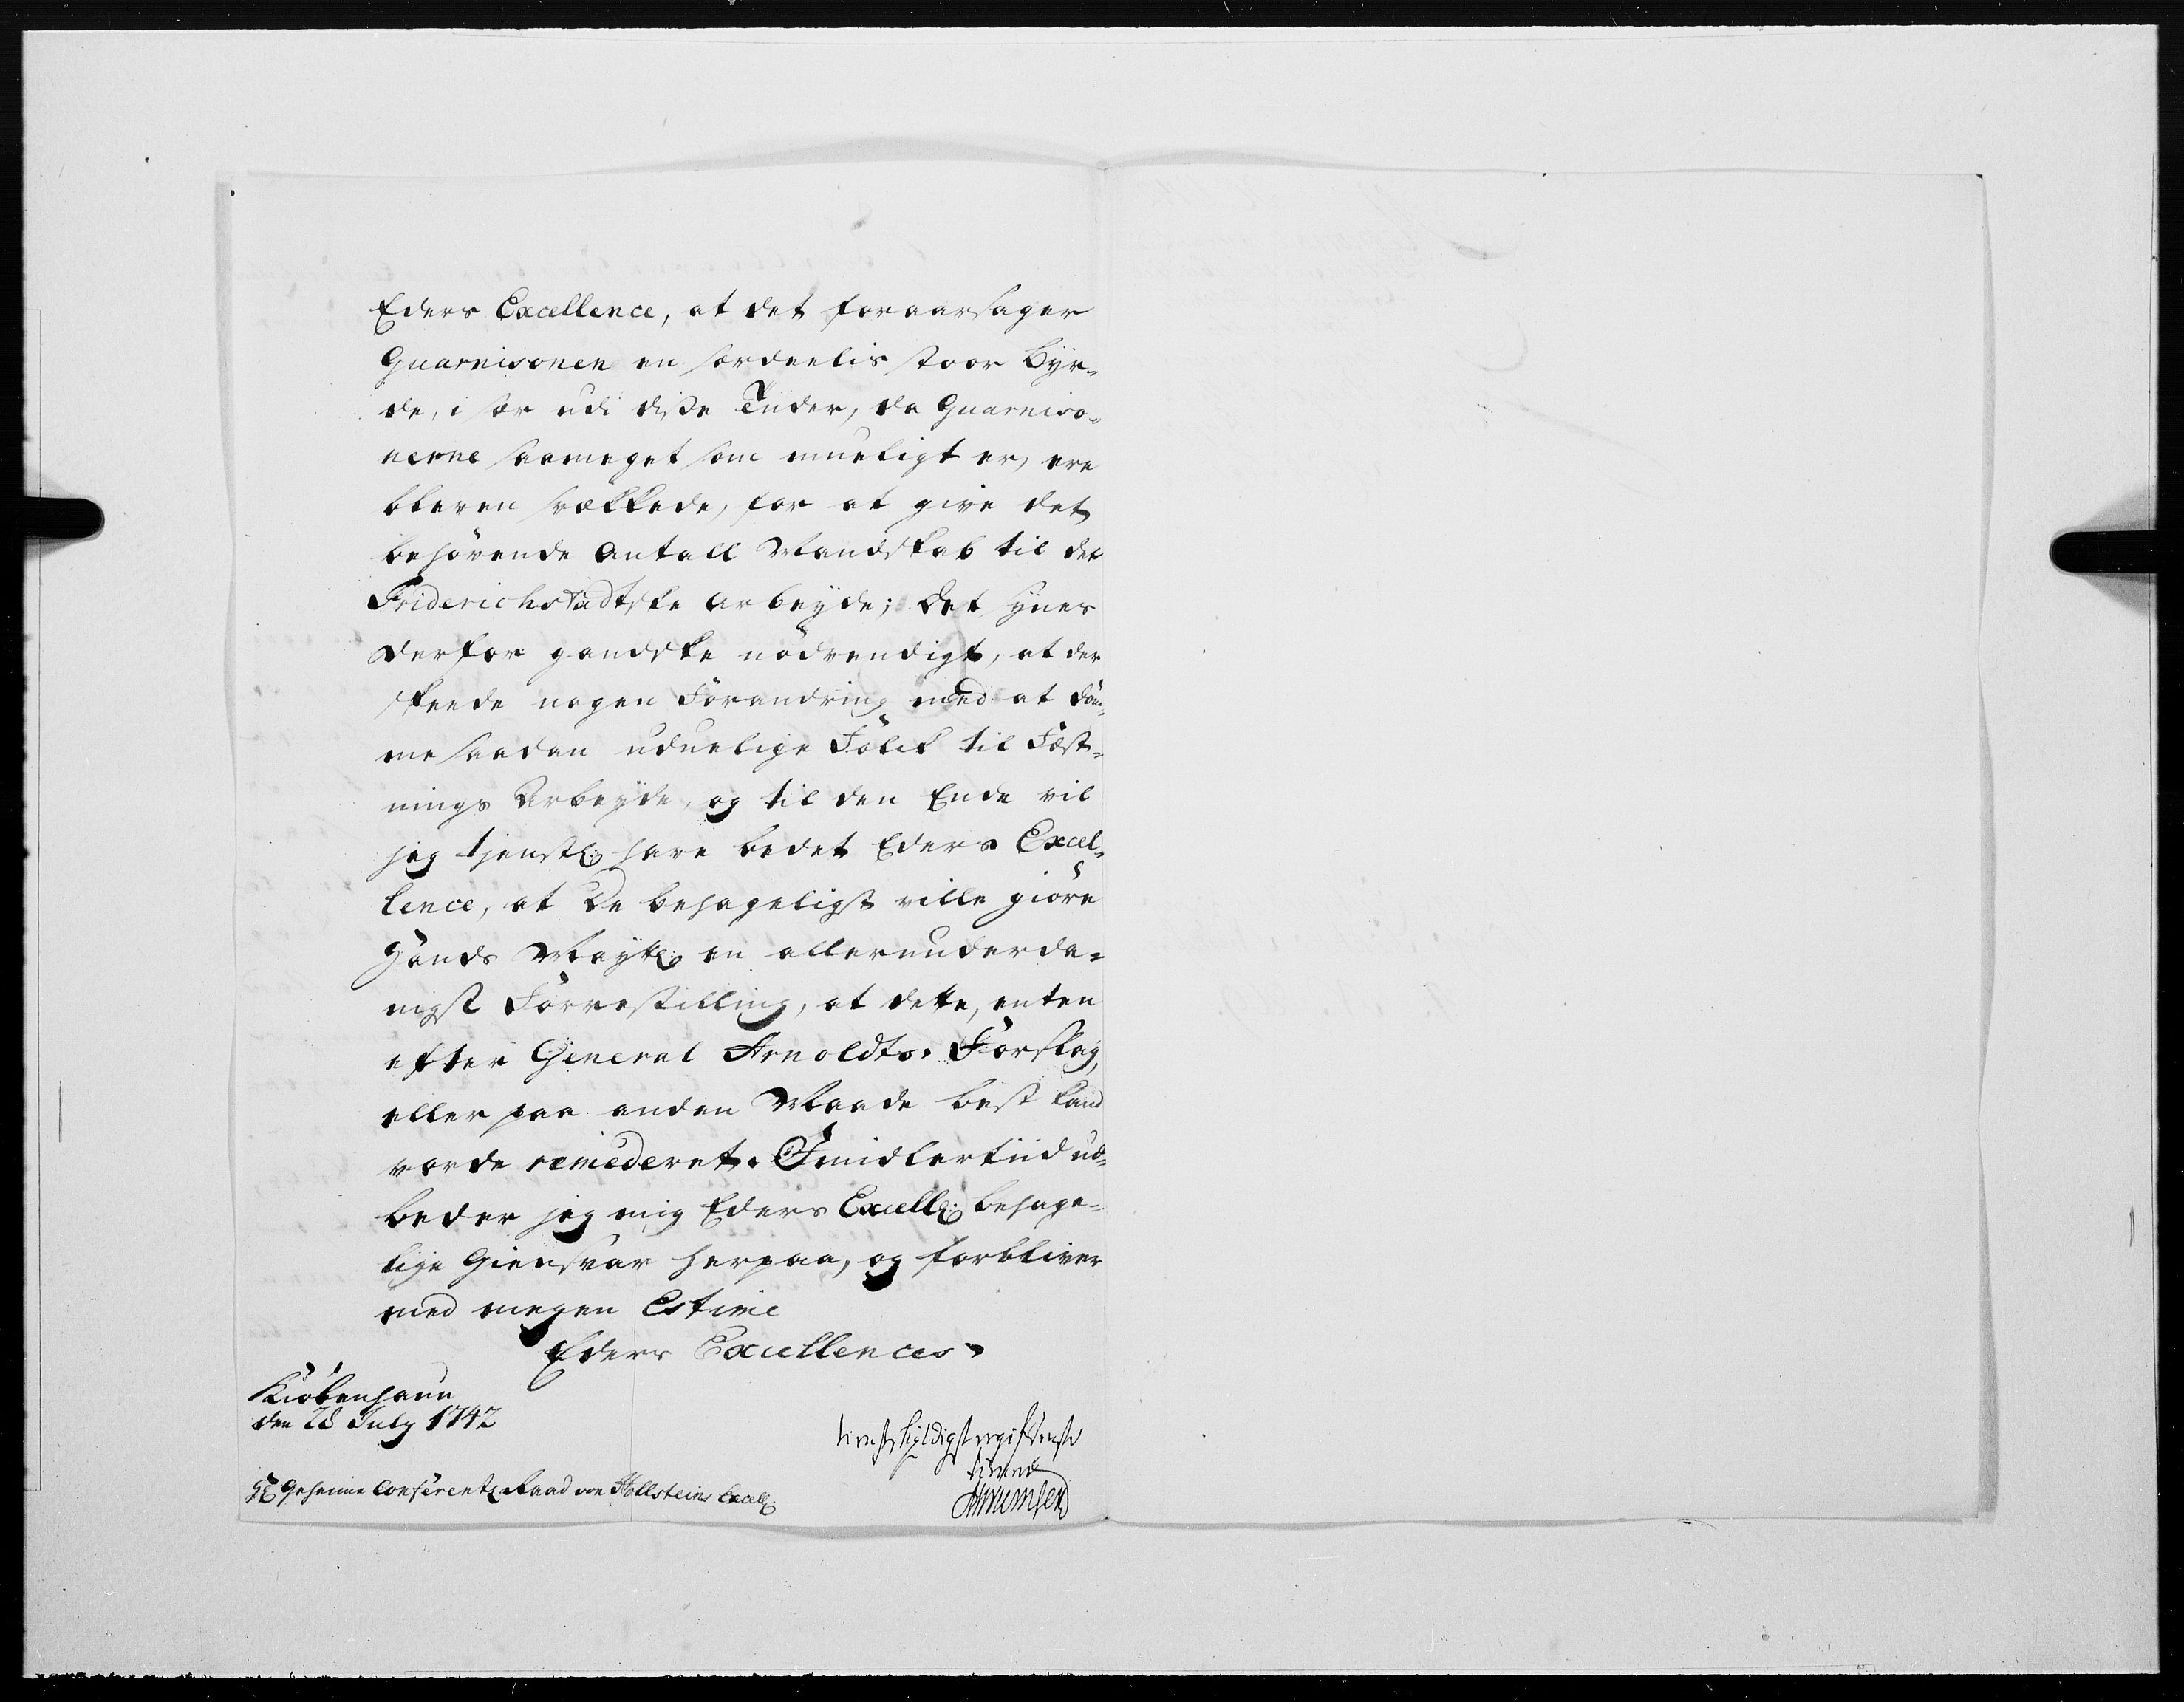 Eders Excellence, at det foraarsager
Guarnisonen en særdeelis stoor Byr-
de, i sær udi disse Tider, da Guarniso-
nerne saameget som mueligt er, ere
bleven svækkede, for at give det
behørende Antall Mandskab til det
Friderichstadtske Arbeyde; Det synes
derfor gandske nødvendigt, at der
skeede nogen Forandring med at døm-
me saadan uduelige Folck til Fæst-
nings Arbeyde, og til den Ende vil
jeg tjenstl: have bedet Eders Excel-
lence, at De behageligst ville giøre
Hands Mayt: en allerunderda-
nigst Forrestilling, at dette, enten
efter General Arnoldts Forslag,
eller paa anden Maade best kand
vorde remederet. Imidlertiid ud-
beder jeg mig Eders Excell: behage-
lige Giensvar herpaa, og forbliver
med megen Estime
Eders Excellences
Kiöbenhaun
den 28 July 1742
tienstskyldigst
tiener
Hr Geheime Conferentz Raad von Hollsteins Excell: